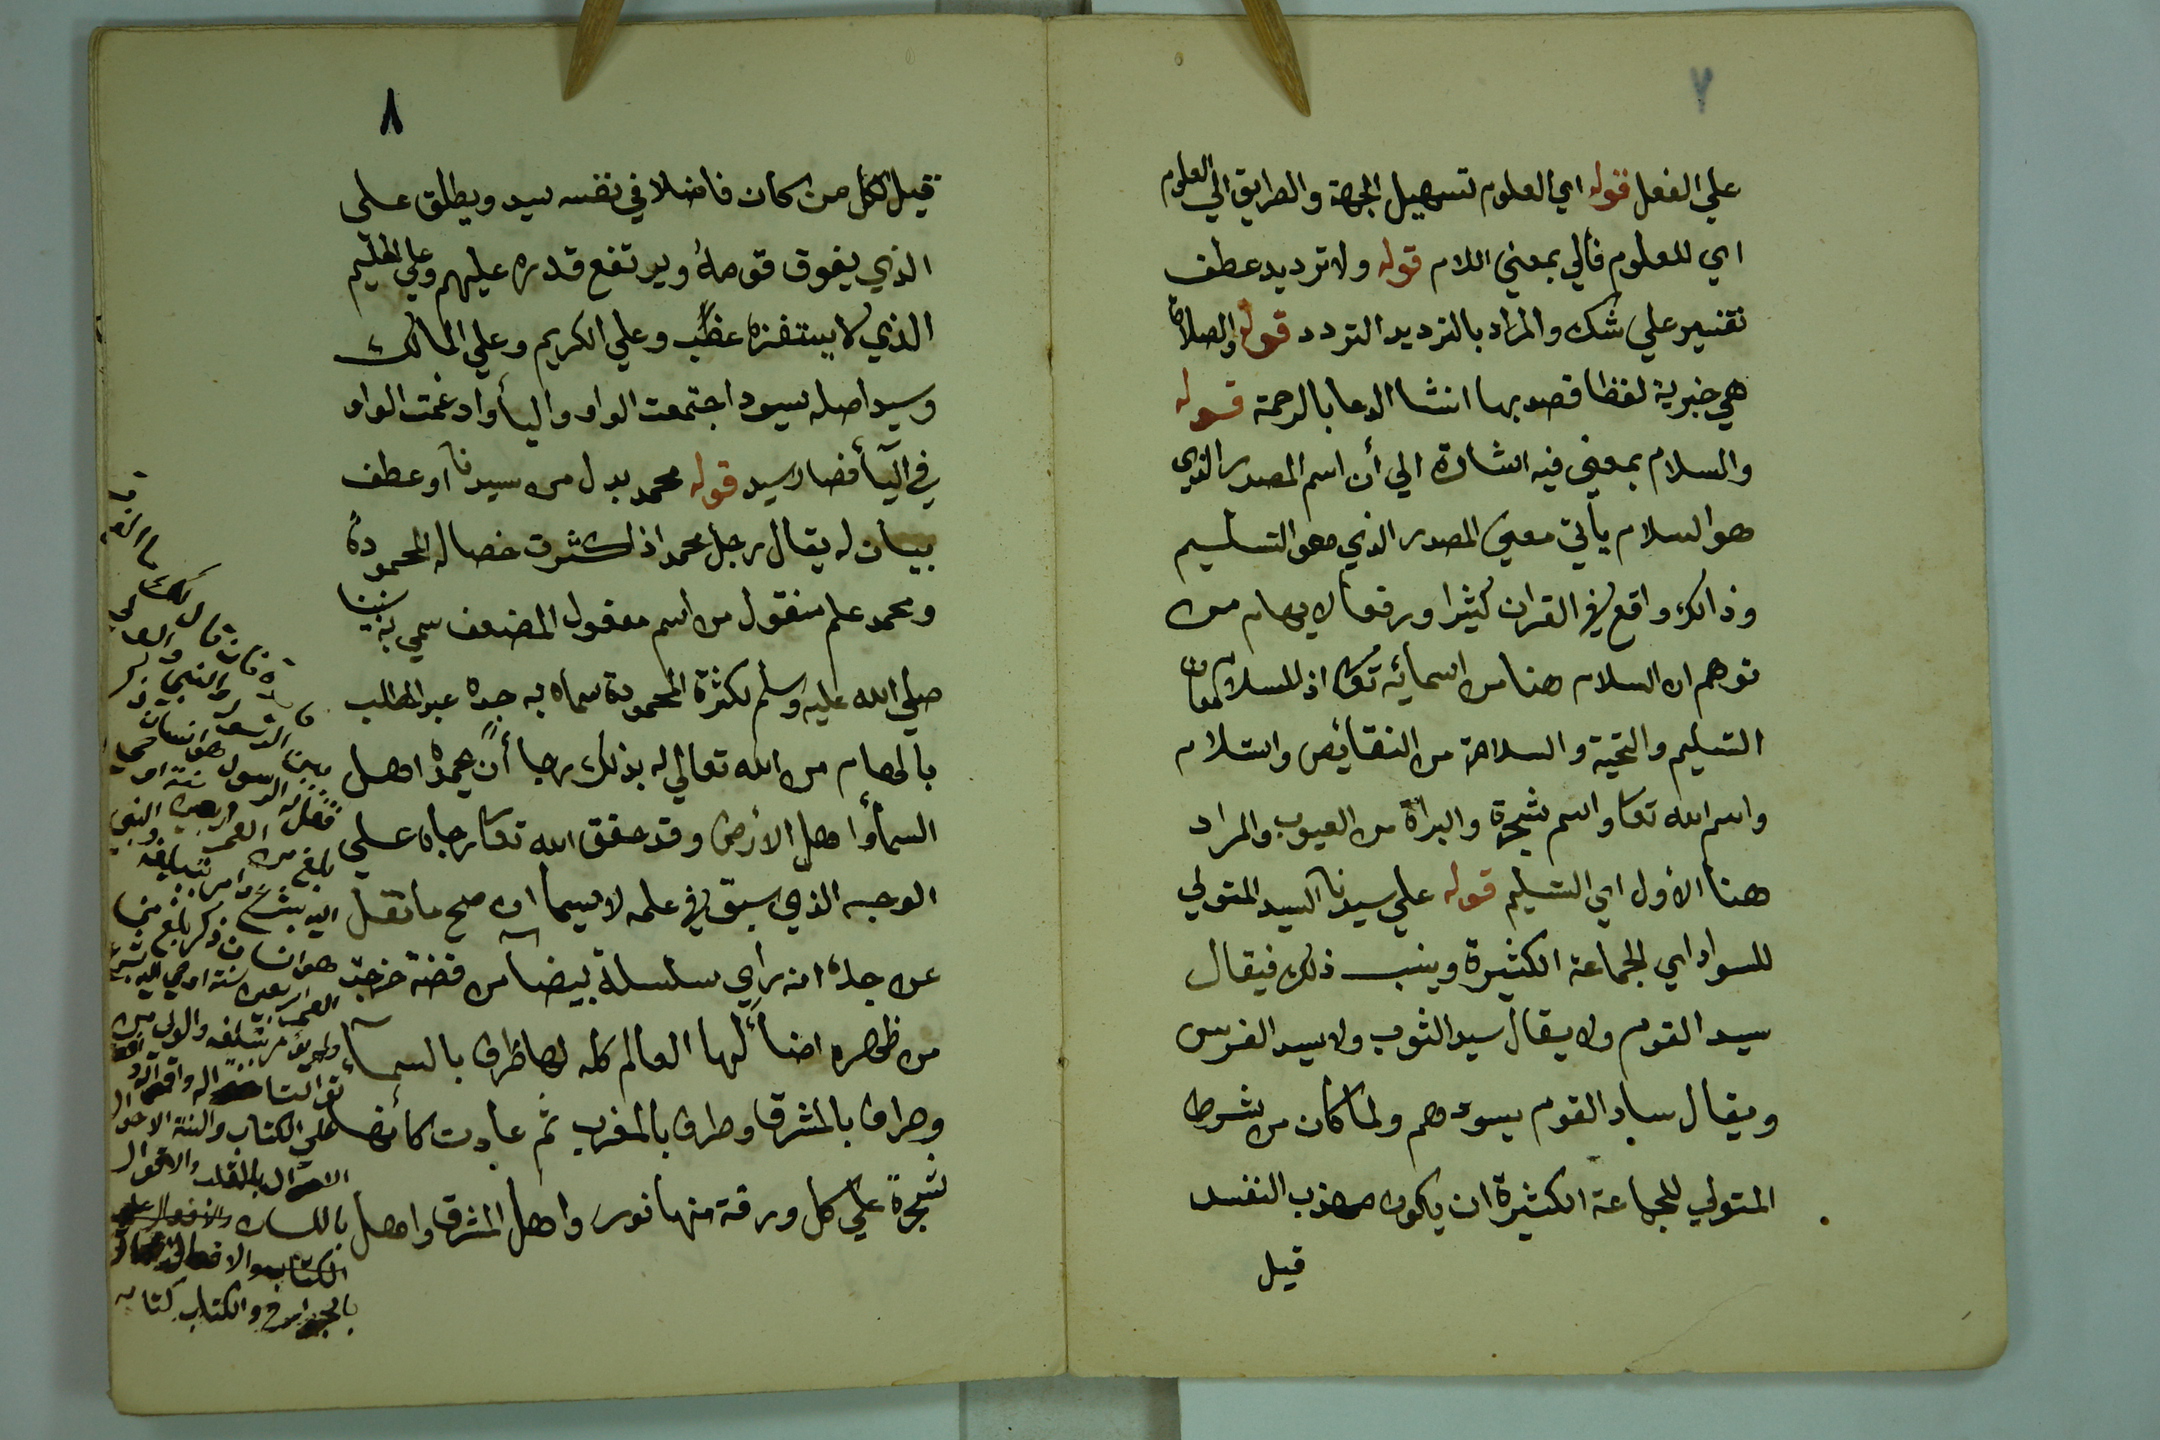 ٧
علي الفعل قوله اي العلوم لتسهيل الجهة والطريق الي العلوم
اي للعلوم فالي بمعني اللام قوله ولا ترديد عطف
تفسير علي شك والمراد بالترديد التردد قوله والصلاة
هي خبرية لفظا قصد بها انشا الدعا بالرحمة قوله
والسلام بمعني فيه اشارة الي أن اسم المصدر الذي
هو السلام يأتي معني المصدر الذي هو التسليم
وذالك واقع في القران كثيرا ورفعا لايهام من
توهم ان السلام هنا من اسمائه تعا اذ للسلام معان
التسليم والتحية والسلامة من النقايص واستلام
واسم الله تعا واسم شجرة والبراة من العيوب والمراد
هنا الأول اي التسليم قوله علي سيدنا السيد المتولي
للسواد اي الجماعة الكثيرة وينسب ذلك فيقال
سيد القوم ولا يقال سيد الثوب ولا سيد الفرس
ويقال ساد القوم يسودهم ولما كان من شرط
المتولي للجماعة الكثيرة ان يكون مهذب النفس
قيل
٨
قيل لكل من كان فاضلا في نفسه سيد ويطلق علي
الذي يفوق قومه ويرتفع قدره عليهم وعلي الحليم
الذي لا يستفزه غضب وعلي الكريم وعلي المالك
وسيد اصله سيود اجتمعت الواو واليأ وادغمت الواو
في اليأ فصار سيد قوله محمد بدل من سيدنا أو عطف
بيان له يقال رجل محمد اذا كثرت خصاله المحمودة
ومحمد علم منقول من اسم مفعول المضعف سمي به نبينا
صلي الله عليه وسلم لكثرة المحمودة سماه به جده عبد المطلب
بالهام من الله تعالي له بذلك رجا أن يحمده اهل
السمأ واهل الأرض وقد حقق الله تعا رجاه علي
الوجه الذي سبق في علمه لا سيما ان صح ما نقل
عن جده انه راي سلسلة بيضأ من فضة خرجت
من ظهره اضأ لها العالم كله لها طرف بالسمأ
وطرف بالمشرق وطرف بالمغرب ثم عادت كأنها
شجرة علي كل ورقة منها نور واهل المشرق واهل
بين الرسول والنبي
فقال الرسول هو انسان
بلغ من العمر اربعين سنة
اليه بشرع وامر بتبليغه والنبي
هو انسان ذكر بلغ من
العمر اربعين سنة اوحي اليه بشرع
ولم يؤمر بتبليغه والولي من
علي الكتاب والسنة الاحوال
بالقلب والاقوال
باللسان
الكتاب والافعال
والكتاب كتابه